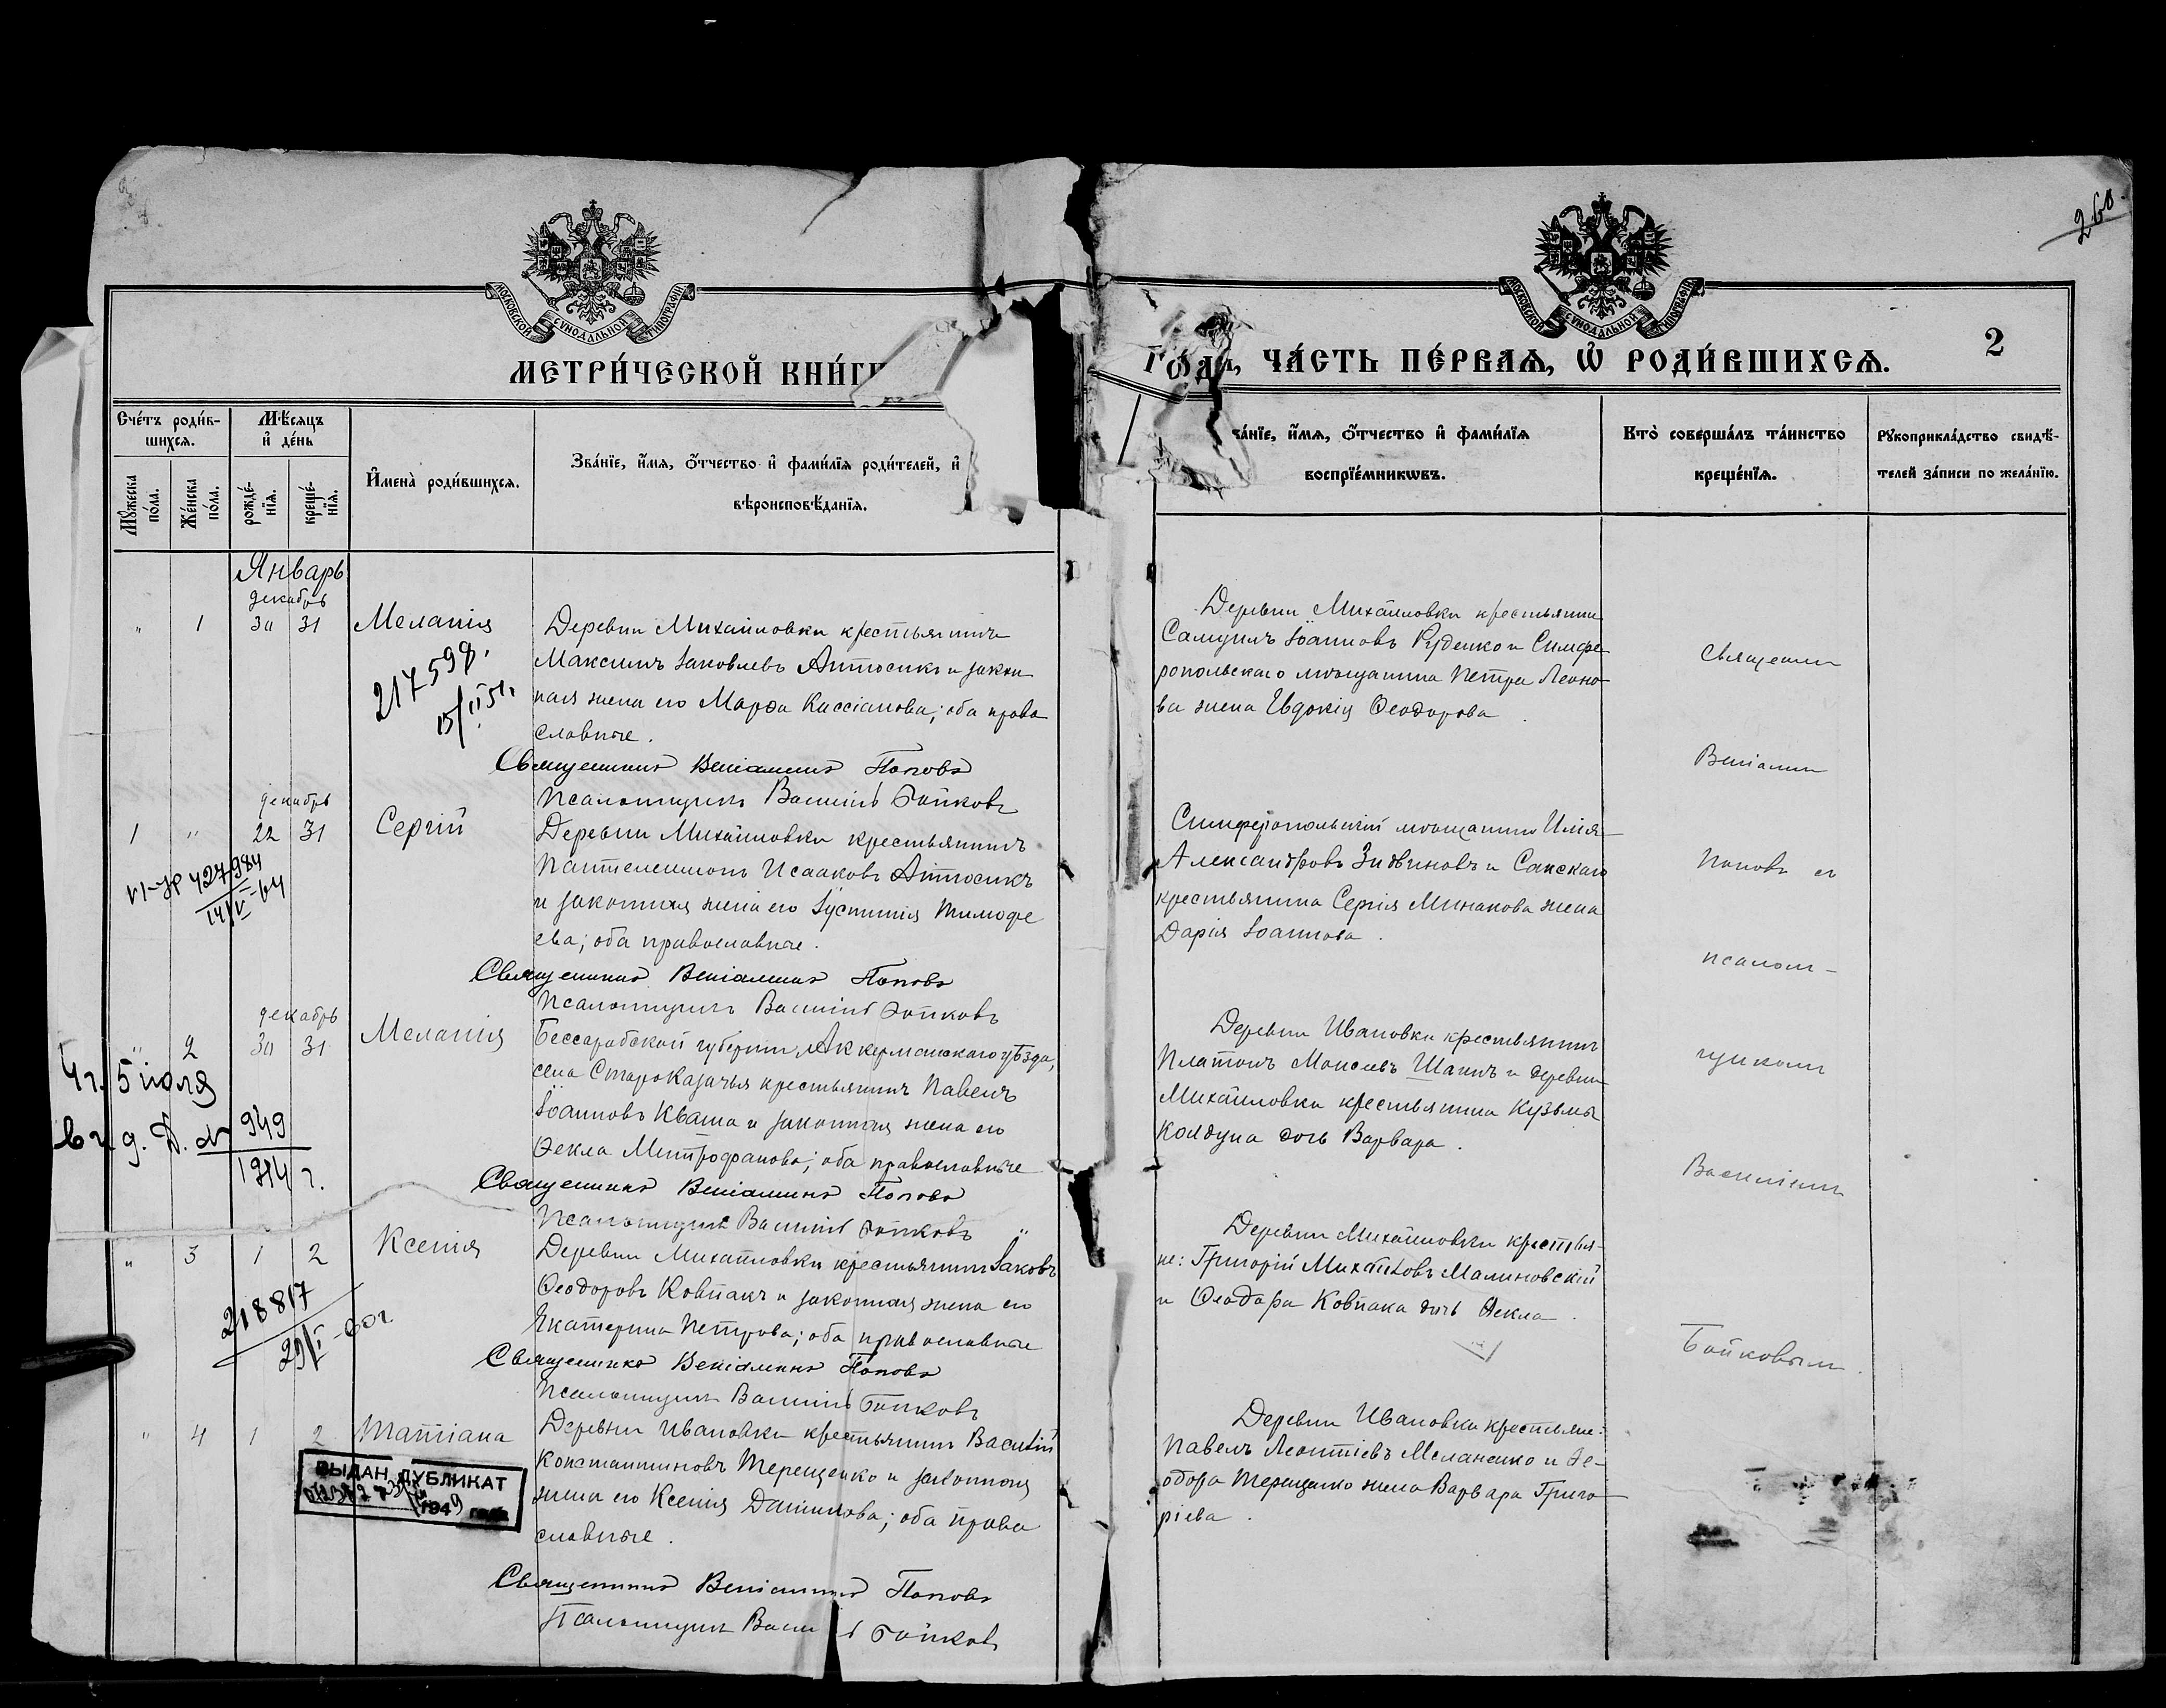 260
МОСКОВСКОЙ СѴНОДАЛЬНОЙ ТИПОГРАФІИ
МОСКОВСКОЙ СѴНОДАЛЬНОЙ ТИПОГРАФІИ
МЕТРИ́ЧЕСКОЙ КНИ́ГИ
ЧА́СТЬ ПЕ́РВАѦ, Ѡ҆ РОДИ́ВШИХСѦ.
2
Сче́тъ роди́в-
шихсѧ.
Мѣ́сѧцъ
и҆ де́нь
Мꙋ́жеска
по́ла.
Же́нска
по́ла.
рожде́-
нїѧ.
креще́-
нїѧ.
И҆мена̀ роди́вшихсѧ.
Зва́нїе, и҆́мѧ, ѻ҆́тчество и҆ фами́лїѧ роди́телей, и҆
вѣроисповѣ́данїѧ.
ва́нїе, и҆́мѧ, ѻ҆́тчество и҆ фами́лїѧ
воспрїе́мникѡвъ.
Кто̀ соверша́лъ та́инство
креще́нїѧ.
Рꙋкоприкла́дство свидѣ́-
телей за́писи по жела́нїю.
Январь
декабрь
" 1 30 31 Меланія
217598.
15/II 51г.
Деревни Михайловки крестьянинъ
Максимъ Іаковлевъ Антосикъ и закон
ная жена его Марѳа Кассіанова; оба право
славные.
Священникъ Веніаминъ Поповъ
Псаломщикъ Василій Бойковъ
Деревни Михайловки крестьянинъ
Самуилъ Іоанновъ Руденко и Симфе-
ропольскаго мѣщанина Петра Леоно-
ва жена Евдокія Ѳеодорова.
декабрь
1 " 22 31 Сергій
427984
14/V-64
Деревни Михайловки крестьянинъ
Пантелеимонъ Исааковъ Антосикъ
и законная жена его Іустинія Тимофе
ева; оба православные.
Священникъ Веніаминъ Поповъ
Псаломщикъ Василій Бойковъ
Симферопольскій мѣщанинъ Илія
Александровъ и Сакскаго
крестьянина Сергія Минакова жена
Дарія Іоаннова.
декабрь
" 2 30 31 Меланія
5 июля
949
1914 г.
Бессарабской губерніи, Аккерманскаго уѣзда,
села СтароКазачья крестьянинъ Павелъ
Іоанновъ Кваша и законная жена его
Ѳекла Митрофанова; оба православные
Священникъ Веніаминъ Поповъ
Псаломщикъ Василій Бойковъ
Деревни Ивановки крестьянинъ
Платонъ Моисеевъ Шапинъ и деревни
Михайловки крестьянина Кузьмы
Колдуна дочь Варвара.
" 3 1 2 Ксенія
218817
29/I-60г.
Деревни Михайловки крестьянинъ Іаковъ
Ѳеодоровъ Ковпакъ и законная жена его
Екатерина Петрова; оба православные
Священникъ Веніаминъ Поповъ
Псаломщикъ Василій Бойковъ
Деревни Михайловки крестья-
не: Григорій Михайловъ Малиновскій
и Ѳеодора Ковпака дочь Ѳекла.
" 4 1 2 Татіана
ВЫДАН ДУБЛИКАТ
1949 года
Деревни Ивановки крестьянинъ Василій
Константиновъ Терещенко и законная
жена его Ксенія Даніилова; оба право
славные.
Священникъ Веніаминъ Поповъ
Псаломщикъ Василій Бойковъ
Деревни Ивановки крестьяне:
Павелъ Леонтіевъ Меланенко и Ѳе-
одора Терещенко жена Варвара Григо-
ріева.
Священникъ
Веніаминъ
Поповъ съ
псалом-
щикомъ
Василіемъ
Бойковымъ.